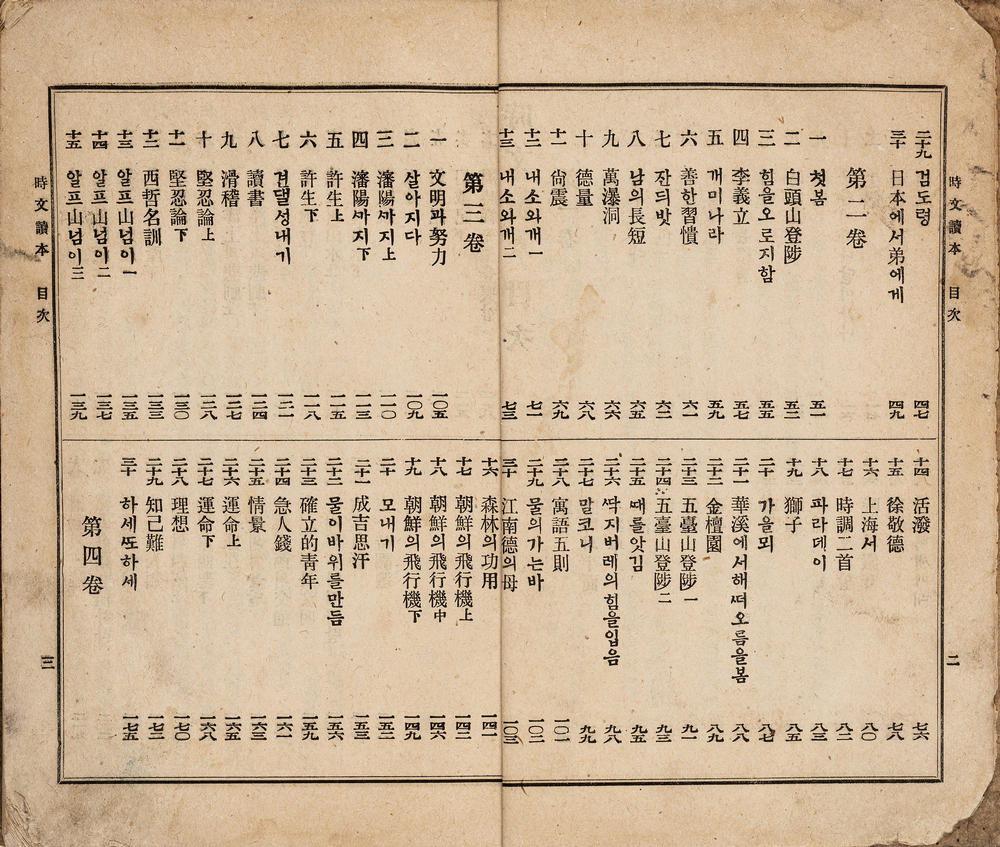 時文讀本 目次 二
二十九 검도령 四七
三十 日本에서弟에게 四九
第二卷
一 첫봄 五一
二 白頭山登陟 五二
三 힘을오로지함 五五
四 李義立 五七
五 개미나라 五九
六 善한習慣 六一
七 잔듸밧 六二
八 남의長短 六五
九 萬瀑洞 六六
十 德量 六八
十一 尙震 六九
十二 내소와개 一 七一
十三 내소와개 二 七三
十四 活潑 七六
十五 徐敬德 七八
十六 上海서 八〇
十七 時調二首 八二
十八 파라데이 八三
十九 獅子 八五
二十 가을뫼 八七
二十一 華溪에서해ᄯᅥ오름을봄 八八
二十二 金檀園 八九
二十三 五臺山登陟 一 九一
二十四 五臺山登陟 二 九三
二十五 ᄯᅢ를앗김 九五
二十六 ᄯᅡᆨ지버레의힘을입음 九八
二十七 말코니 九九
二十八 寓語五則 一〇一
二十九 물의가는바 一〇二
三十 江南德의母 一〇三
第三卷
一 文明과努力 一〇五
二 살아지다 一〇九
三 瀋陽ᄭᅡ지 上 一一〇
四 瀋陽ᄭᅡ지 下 一一三
五 許生 上 一一五
六 許生 下 一一八
七 견댈성내기 一二一
八 讀書 一二四
九 滑稽 一二七
十 堅忍論 上 一二八
十一 堅忍論 下 一三〇
十二 西哲名訓 一三三
十三 알프山넘이 一 一三五
十四 알프山넘이 二 一三七
十五 알프山넘이 三 一三九
十六 森林의功用 一四一
十七 朝鮮의飛行機 上 一四二
十八 朝鮮의飛行機 中 一四六
十九 朝鮮의飛行機 下 一四九
二十 모내기 一五二
二十一 成吉思汗 一五三
二十二 물이바위를만듬 一五六
二十三 確立的靑年 一五九
二十四 急人錢 一六一
二十五 情景 一六三
二十六 運命 上 一六五
二十七 運命 下 一六八
二十八 理想 一七〇
二十九 知己難 一七二
三十 하세ᄯᅩ하세 一七五
第四卷
時文讀本 目次 三